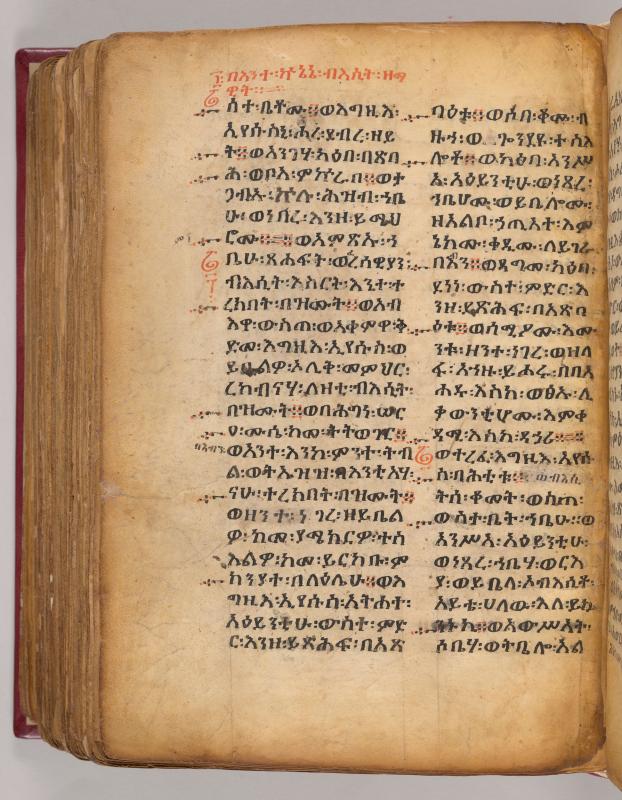 ፲ በእንተ፡ኵነኔ፡ብእሲት፡ዘማ
ዊት።
ሰተ፡ቤቶሙ። ወእግዚእ፡
ኢየሱስኒ፡ሖረ፡ደብረ፡ዘይ
ት። ወእንግሃ፡ካዕበ፡በጽባ
ሕ፡ወቦአ፡ምኵራበ። ወተ
ጋብኡ፡ኵሉ፡ሕዝብ፡ኀቤ
ሁ፡ወነበረ፡እንዘ፡ይሜህ
ሮሙ። ወአምጽኡ፡ኀ
ቤሁ፡ጸሐፍት፡ወፈሪሳዊያን፡
ብእሲት፡እስርት፡እንተ፡ተ
ረክበት፡በዝሙት። ወአብ
እዋ፡ውስጠ፡ወአቀምዋ፡ቅ
ድመ፡እግዚእ፡ኢየሱስ፡ወ
ይቤልዎ፡ኦሊቅ፡መምህር፡
ረከብናሃ፡ለዛቲ፡ብእሲት፡
በዝሙት። ወበሕግነ፡ሠር
ዐ፡ሙሴ፡ከመ፡ትትወገር።
ወአንተ፡እንከ፡ምንተ፡ትብ
ል፡ወትኤዝዝ፡በእንቲአሃ፡
ናሁ፡ተረክበት፡በዝሙት።
ወዘንተ፡ነገረ፡ዘይቤል
ዎ፡ከመ፡ያመክርዎ፡ተስ
እልዎ፡ከመ፡ይርከቡ፡ም
ክንያተ፡በላዕሌሁ። ወእ
ግዚእ፡ኢየሱስ፡አትሐተ፡
አዕይንቲሁ፡ውስተ፡ምድ
ር፡እንዘ፡ይጽሕፍ፡በአጽ
ባዕቱ። ወሶበ፡ቆሙ፡ብ
ዙኀ፡ወ ጐንደዩ፡ተስእ
ሎቶ። ወካዕበ፡አንሥ
አ፡አዕይንቲሁ፡ወነጸረ፡
ኀቤሆሙ፡ወይቤሎሙ፡
ዘአልቦ፡ኃጢአት፡እም
ኔክሙ፡ቀዲሙ፡ለይገራ
በእብን። ወደገመ፡ካዕበ፡
ደነነ፡ውስተ፡ምድር፡እ
ንዘ፡ይጽሕፍ፡በአጽባ
ዕቱ። ወሰሚዖሙ፡እሙ
ንቱ፡ዘንተ፡ነገረ፡ወዘለ
ፋ፡አኀዙ፡ይሖሩ፡በበአ
ሐዱ፡እስከ፡ወፅኡ፡ሊ
ቃውንቲሆሙ፡እምቀ
ዳሚ፡እስከ፡ዳኃሪ።
ወተረፈ፡እግዚእ፡ኢየሱ
ስ፡በሕቲቱ። ወብእሲ
ትሰ፡ቆመት፡ወስጠ፡
ውስተ፡ቤት፡ኀቤሁ። ወ
አንሥአ፡አዕይንቲሁ፡
ወነጸረ፡ኀቤሃ፡ወርእ
ያ፡ወይቤላ፡ኦብእሲቶ፡
አይቴ፡ሀለዉ፡እለ፡ይኴ
ንኑኪ። ወአውሥአት፡
ሶቤሃ፡ወትቤሎ፡አል